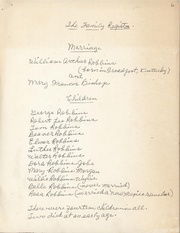 The Family Register
Marriage
William Archie Robbins
(born in Breckfort, Kentucky)
and
Mary Frances Bishop
Children
George Robbins
Robert Lee Robbins
Tom Robbins
Beaver Robbins
Elmer Robbins
Luther Robbins
Walter Robbins
Dora Robbins John
Mary Robbins Morgan
Willie Robbins
Belle Robbins (never married)
Rosa Robbins (married
There were fourteen children in all.
Two died at an early age.